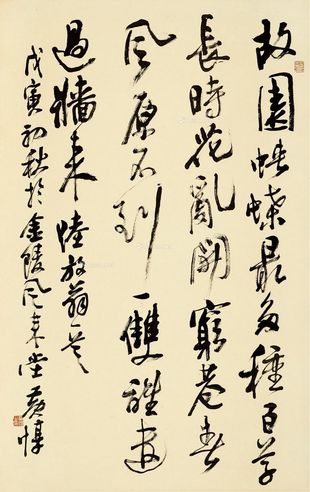 故園蛺蝶最多種百草
長時花亂開窮巷春
風原不到一雙誰遣
過牆來 陸放翁一首
戊寅初秋於金陵風來堂黃惇